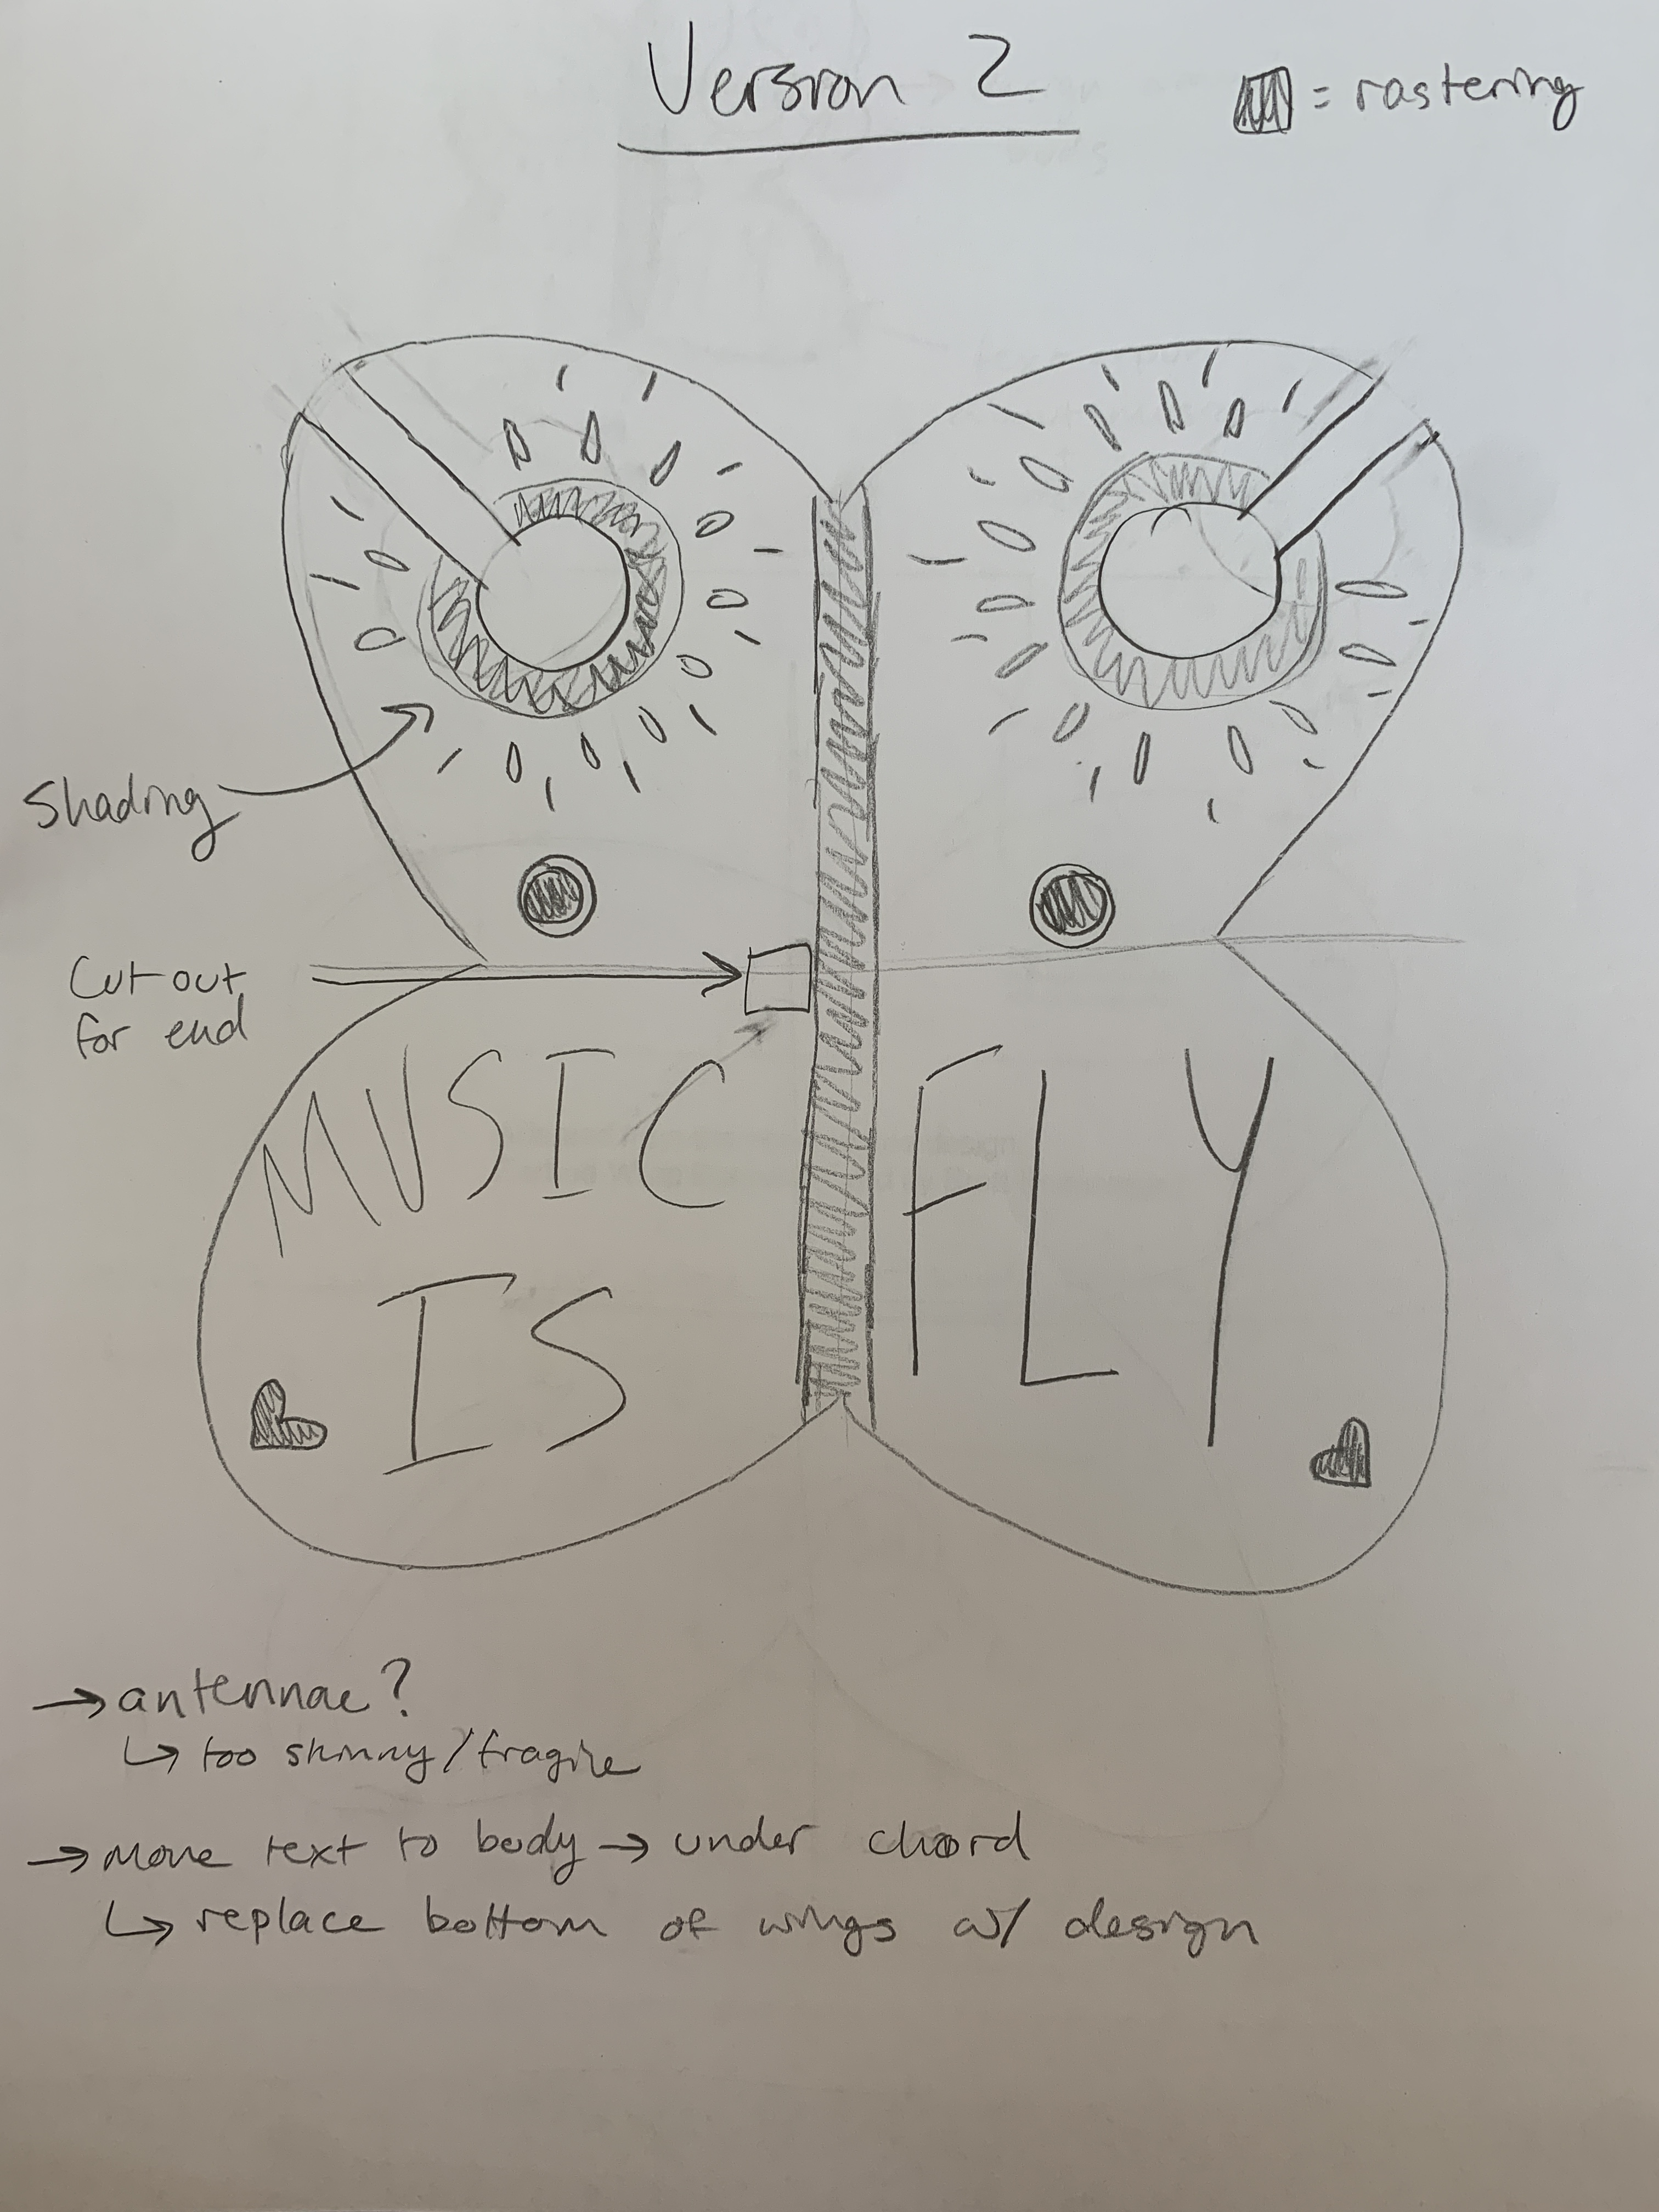 Version 2
= rastering
Shading
Cut out
for end
MUSIC
IS
FLY
→ antennae?
↳ too skinny/fragile
→ Move text to body → under chord
↳ replace bottom of wings w/ design